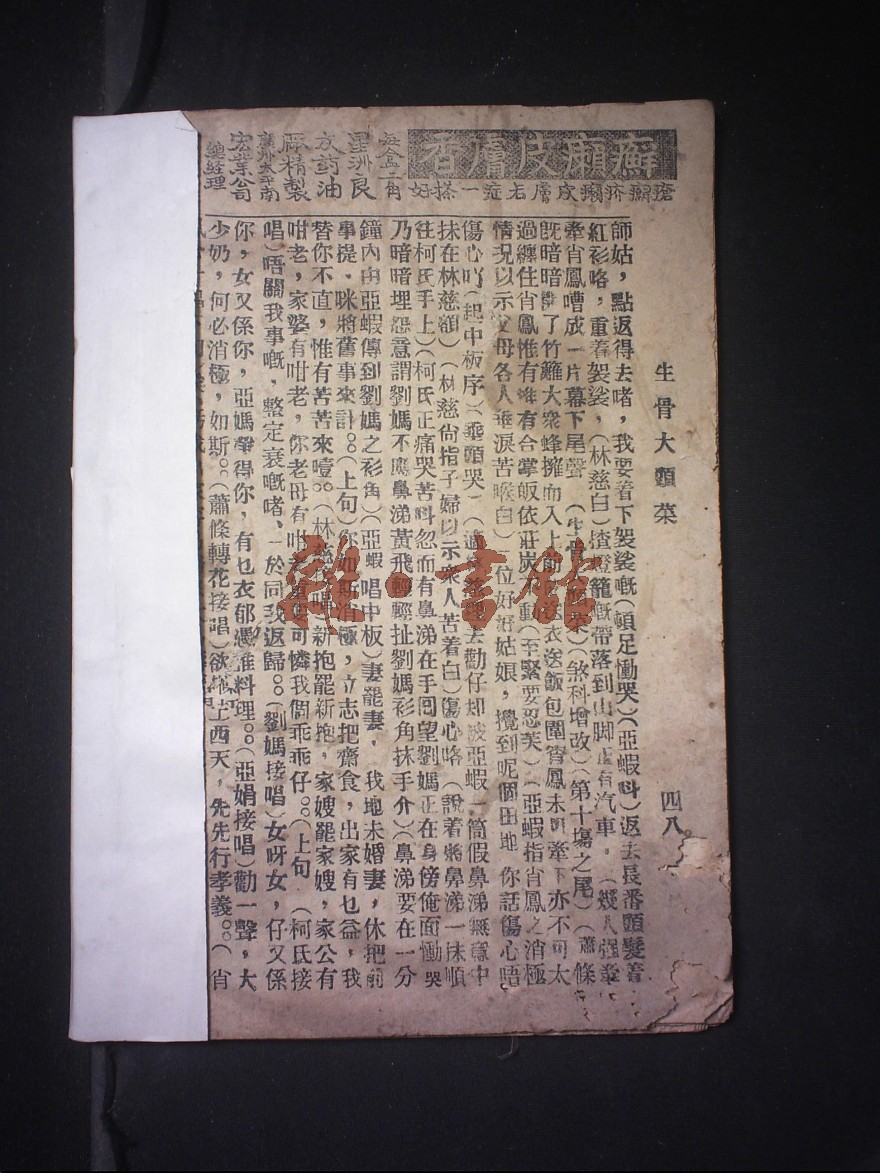 癬癩皮膚香
瘡癬疥癩皮膚右症一搽好
每盒二角
星洲良
方药油
豚精製
廣州太平南
宏業公司
總經理
生骨大頭菜
四八
師姑，點返得去啫，我要着下袈裟嘅（頓足慟哭）（亞蝦呌）返去長番頭髮着
紅衫咯，重着袈裟，（林慈白）揸燈籠嘅帶落到山脚 有汽車，（幾人强
牽肖鳳嘈成一片幕下尾聲（生骨 菜）（煞科增改）（第十塲之尾）（蕭條
既暗暗 了竹籬大衆蜂擁而入上前 衣送飯包圍肖鳳未 牽下亦不可太
過纏住肖鳳惟有 有合掌皈依莊 動（至緊要忍芙）（亞蝦指肖鳳之消極
情況以示父母各人垂淚苦喉白）一位好好姑娘，攪到呢個田地 你話傷心唔
傷心吖（起中板序）（垂頭哭） 去勸仔却被亞蝦一筒假鼻涕無意中
抹在林慈額）（林慈尙指子婦以示衆人苦着白）傷心咯（說着將鼻涕一抹順
往柯氏手上）（柯氏正痛哭苦呌忽而有鼻涕在手囘望劉媽正在身傍俺面慟哭
乃暗暗埋怨意謂劉媽不應鼻涕黃飛輕輕扯劉媽衫角抹手介）（鼻涕要在一分
鐘內由亞蝦傳到劉媽之衫角）（亞蝦 唱中板）妻罷妻，我地未婚妻，休把前
事提，咪將舊事來計。○（上句）你如斯消極，立志把齋食，出家有乜益，我
替你不直，惟有苦苦來噎。○（林慈 唱）新抱罷新抱，家嫂罷家嫂，家公有
咁老，家婆有咁老，你老母有咁老 可憐我個乖乖仔。○（上句）（柯氏接
唱）唔關我事嘅，整定衰嘅啫，一於同我返歸。○（劉媽接唱）女呀女，仔又係
你，女又係你，亞媽聲得你，有乜衣郁憑誰料理。○（亞娟接唱）勸一聲，大
少奶，何必消極，如斯。○（蕭條轉花接唱）欲 上西天，先先行孝義。○（肖